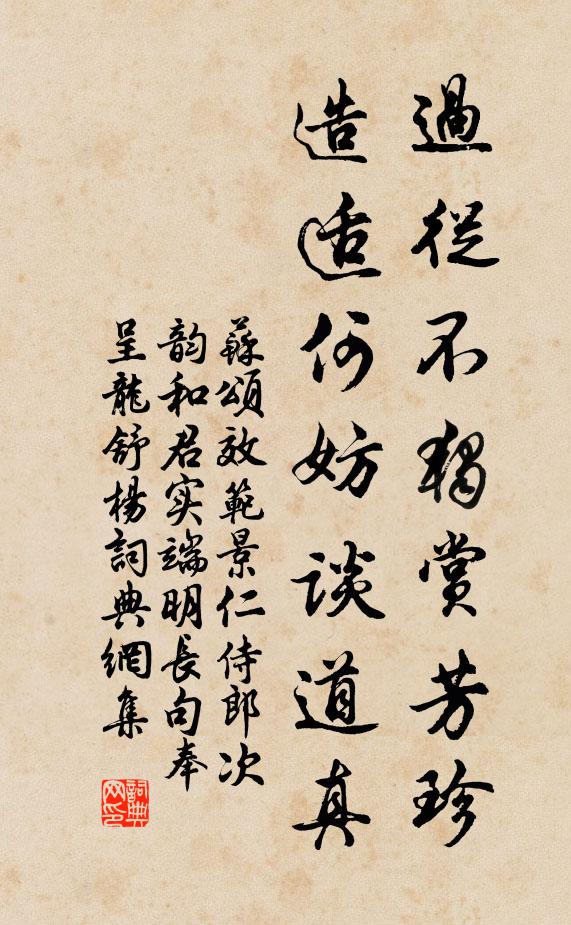 過從不獨賞芳珍
造适何妨談道真
蘇頌效範景仁侍郎次
韵和君实端明長句奉
呈龍舒楊詞典網集
詞典
网印